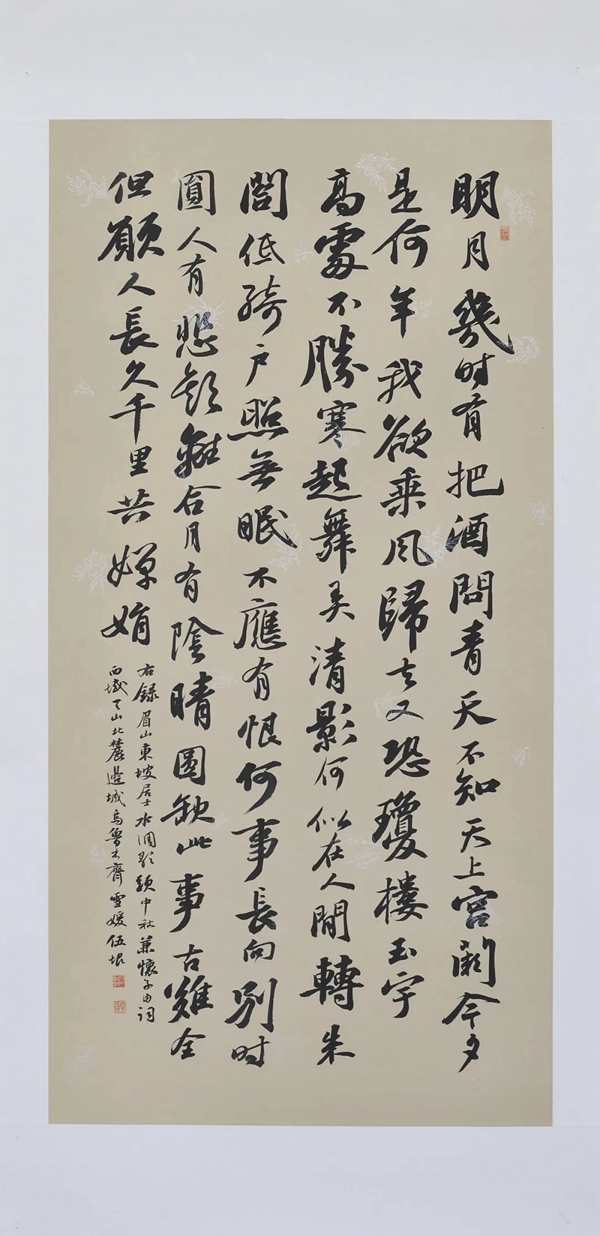 明月幾時有把酒問青天不知天上宮闕今夕
是何年我欲乘风歸去又恐瓊樓玉宇
高處不勝寒起舞弄清影何似在人間轉朱
閣低綺户照無眠不應有恨何事長向别時
圓人有悲歡離合月有陰晴圆缺此事古難全
但願人長久千里共嬋娟
右録眉山東坡居士水调歌頭中秋兼懷子由词
西域天山北麓邊城烏魯木齊雪媛伍垠